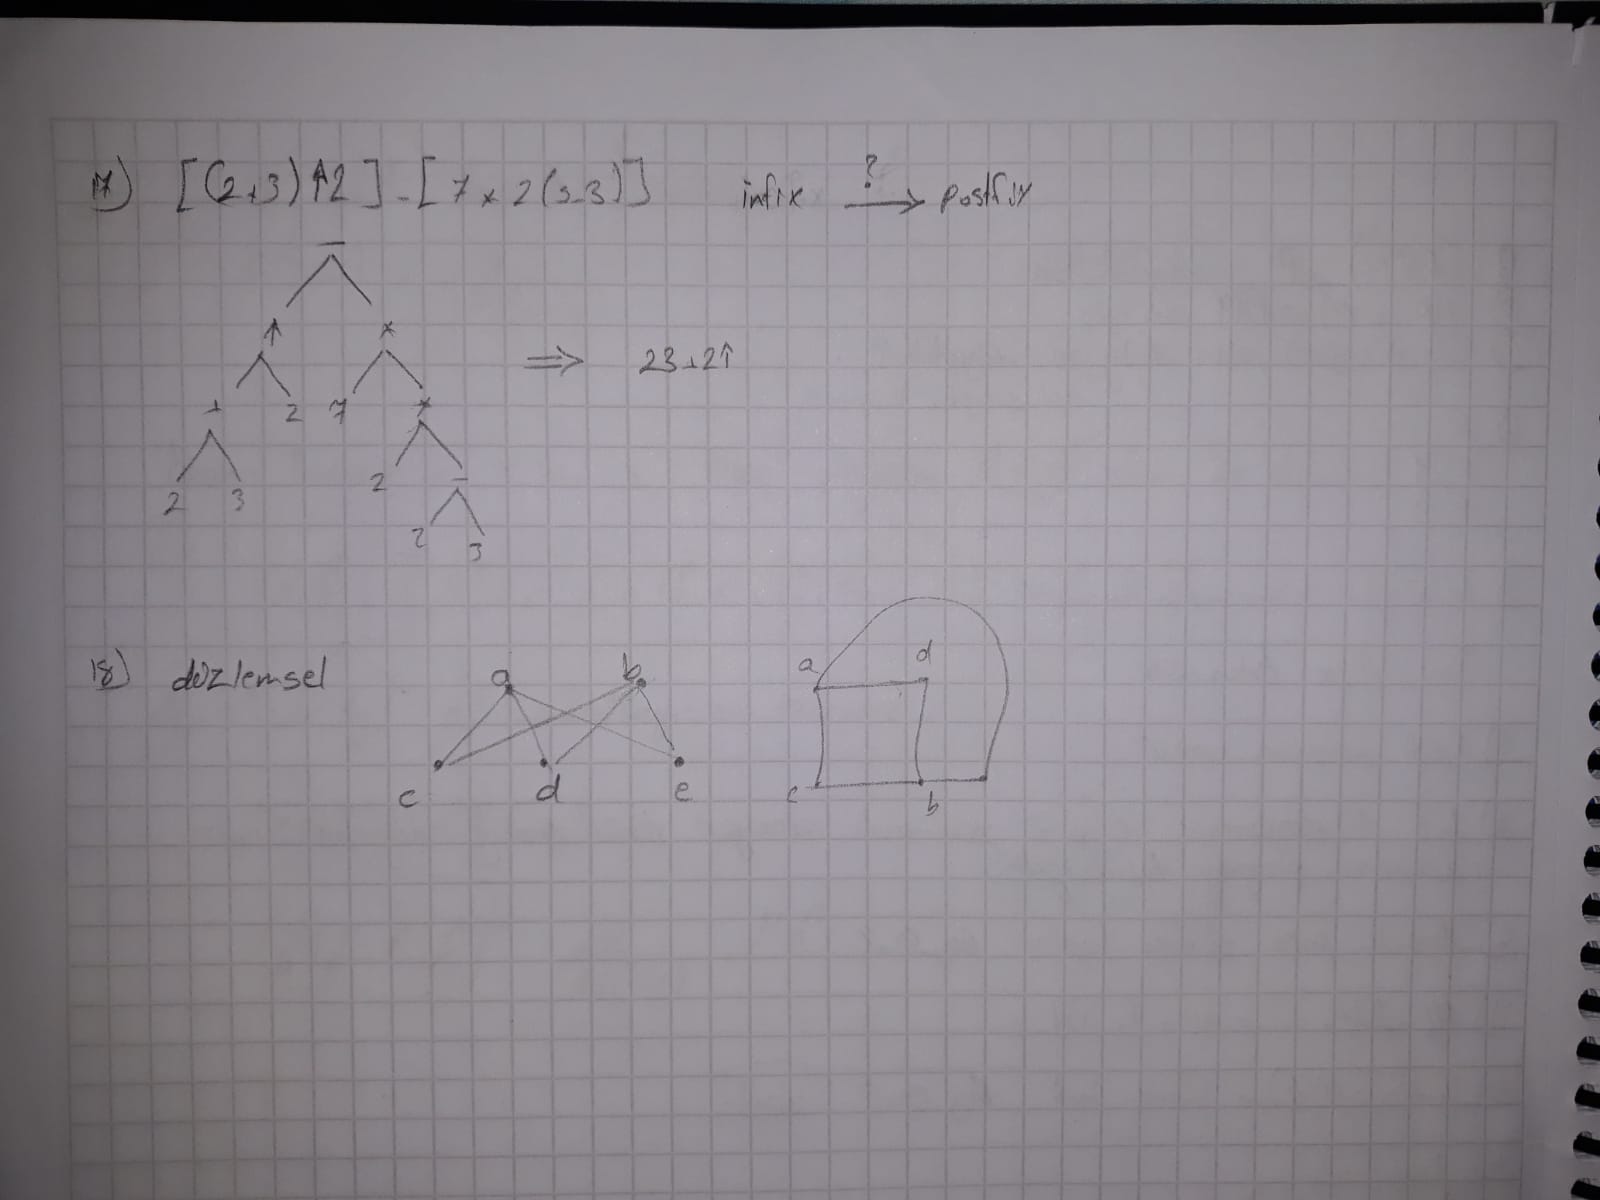 17) [(2+3)↑2]-[7*2(3-3)] infix ?→ postfix
-
↑ *
⇒ 23+2↑
+ 2 7 *
2 3 2 -
2 3
18) düzlemsel a b
c d e
a d
c b